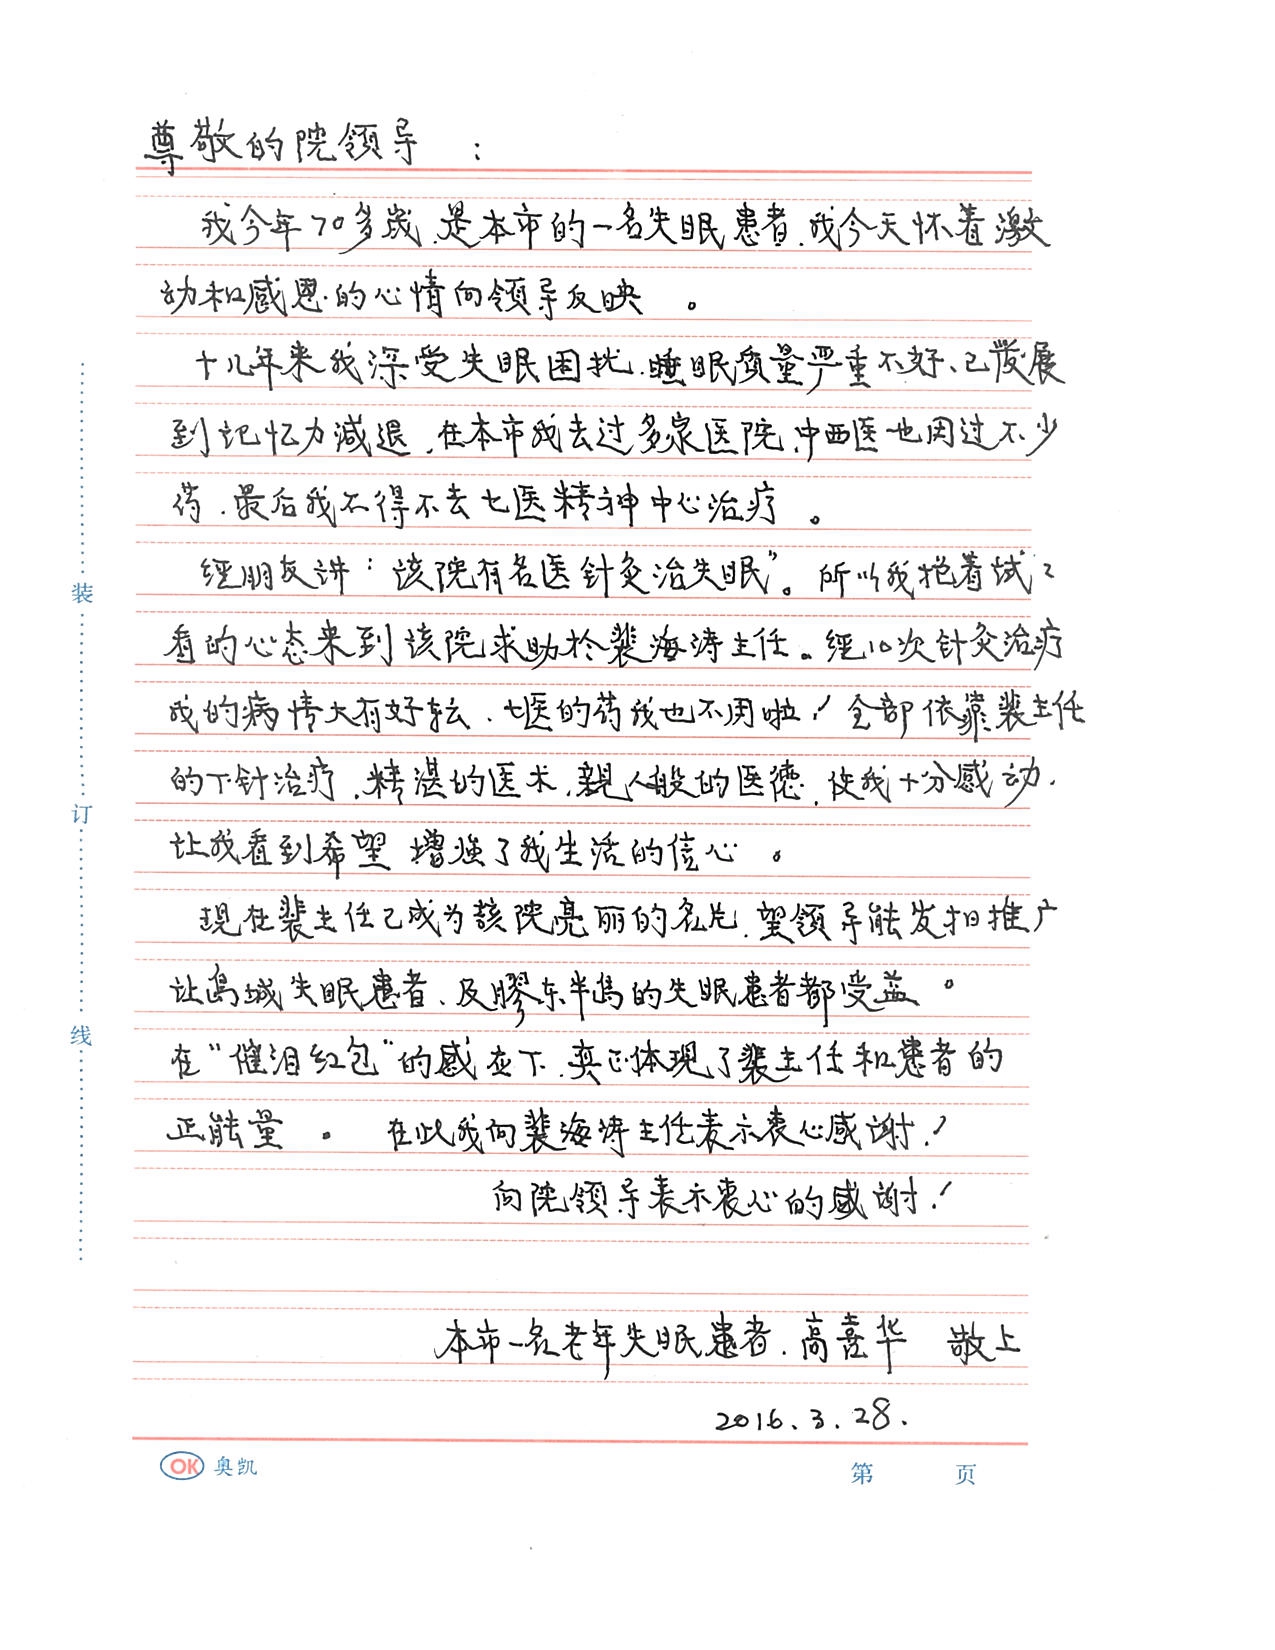 尊敬的院领导：
我今年70多岁、是本市的一名失眠患者、我今天怀着激
动和感恩的心情向领导反映。
十几年来我深受失眠困扰、睡眠质量严重不好、已发展
到记忆力减退、在本市我去过多家医院、中西医也用过不少
药、最后我不得不去七医精神中心治疗。
经朋友讲：该院有名医针灸治失眠”。所以我抱着试々
看的心态来到该院求助於裴海涛主任。经10次针灸治疗
我的病情大有好转、七医的药我也不用啦！全部依靠裴主任
的下针治疗、精湛的医术、親人般的医德、使我十分感动、
让我看到希望 增强了我生活的信心。
现在裴主任已成为該院亮丽的名片、望领导能发扬推广
让岛城失眠患者、及膠东半岛的失眠患者都受益。
在“催泪红包”的感应下、真正体现了裴主任和患者的
正能量。 在此我向裴海涛主任表示衷心感谢！
向院领导表示衷心的感谢！
本市一名老年失眠患者、高喜华 敬上
2016.3.28.
装
订
线
OK 奥凯
第 页